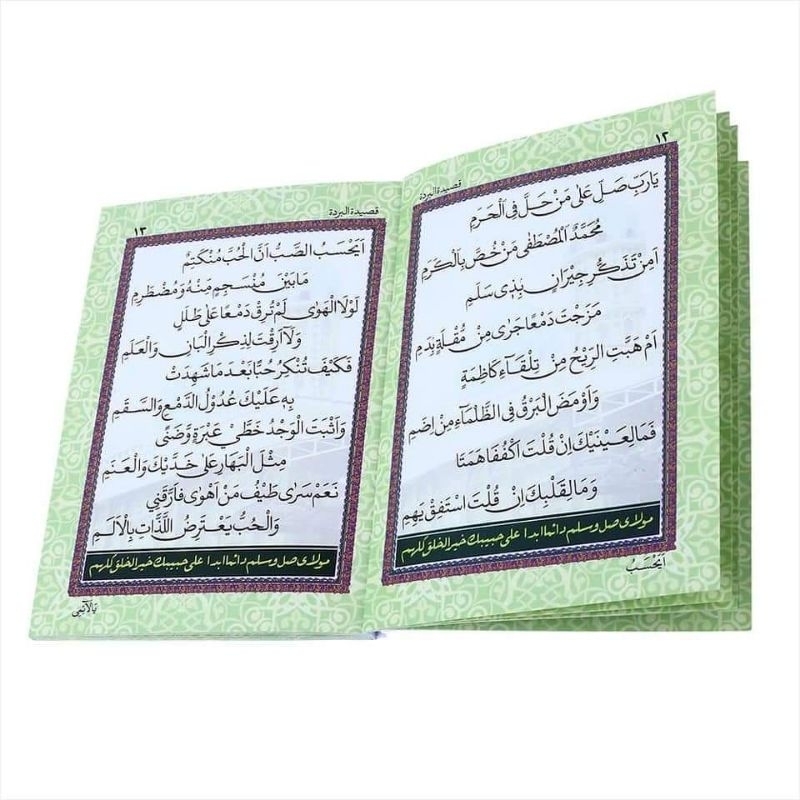 ١٢
قصيدة البردة
يَارَبِّ صَلِّ عَلٰى مَنْ حَلَّ فِى الْحَرَمِ
مُحَمَّدٌ الْمُصْطَفٰى مَنْ خُصَّ بِالْكَرَمِ
اَمِنْ تَذَكُّرِ جِيْرَانٍ بِذِى سَلَمِ
مَزَجْتَ دَمْعًا جَرٰى مِنْ مُقْلَةٍ بِدَمِ
اَمْ هَبَّتِ الرِّيْحُ مِنْ تِلْقَآءِ كَاظِمَةٍ
وَاَوْمَضَ الْبَرْقُ فِى الظَّلْمَآءِ مِنْ اِضَمِ
فَمَا لِعَيْنَيْكَ اِنْ قُلْتَ اكْفُفَا هَمَتَا
وَمَا لِقَلْبِكَ اِنْ قُلْتَ اسْتَفِقْ يَهِمِ
مولاى صل وسلم دائما ابدا على حبيبك خير الخلق كلهم
اَيَحْسَبُ
١٣
قصيدة البردة
اَيَحْسَبُ الصَّبُّ اَنَّ الْحُبَّ مُنْكَتِمٌ
مَابَيْنَ مُنْسَجِمٍ مِنْهُ وَمُضْطَرِمِ
لَوْلَا الْهَوٰى لَمْ تُرِقْ دَمْعًا عَلٰى طَلَلٍ
وَلَآ اَرِقْتَ لِذِكْرِ الْبَانِ وَالْعَلَمِ
فَكَيْفَ تُنْكِرُ حُبًّا بَعْدَ مَا شَهِدَتْ
بِهِ عَلَيْكَ عُدُوْلُ الدَّمْعِ وَالسَّقَمِ
وَاَثْبَتَ الْوَجْدُ خَطَّيْ عَبْرَةٍ وَّضَنًى
مِثْلَ الْبَهَارِ عَلٰى خَدَّيْكَ وَالْعَنَمِ
نَعَمْ سَرٰى طَيْفُ مَنْ اَهْوٰى فَاَرَّقَنِي
وَالْحُبُّ يَعْتَرِضُ اللَّذَّاتِ بِالْاَلَمِ
مولاى صل وسلم دائما ابدا على حبيبك خير الخلق كلهم
يَالَآئِمِى